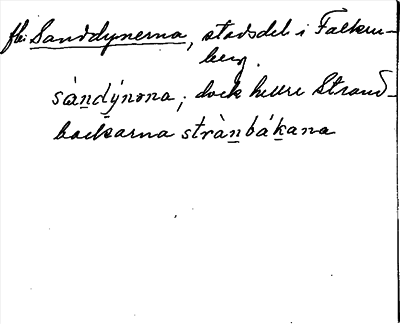 fb: Sanddynerna, stadsdel i Falken-
berg.
sàndýnəna; dock hellre Strand-
backarna strànbákana